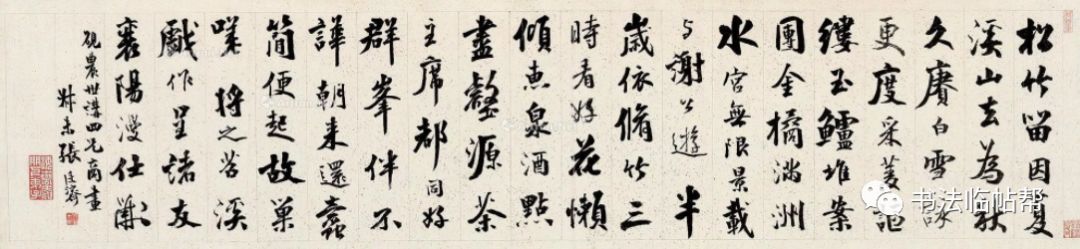 松竹留因夏
溪山去為秋
久賡白雪詠
更度采菱謳
缕玉鱸堆案
團金橘滿洲
水宫無限景載
与謝公遊 半
歲依脩竹三
時看好花懶
傾惠泉酒點
盡壑源茶
主席都同好
群峯伴不
譁朝来還蠹
簡便起故巢
嘆 將之苕溪
戲作呈諸友
襄陽漫仕黻
硯農世講四兄商畫
叔未張廷濟
书法临帖帮